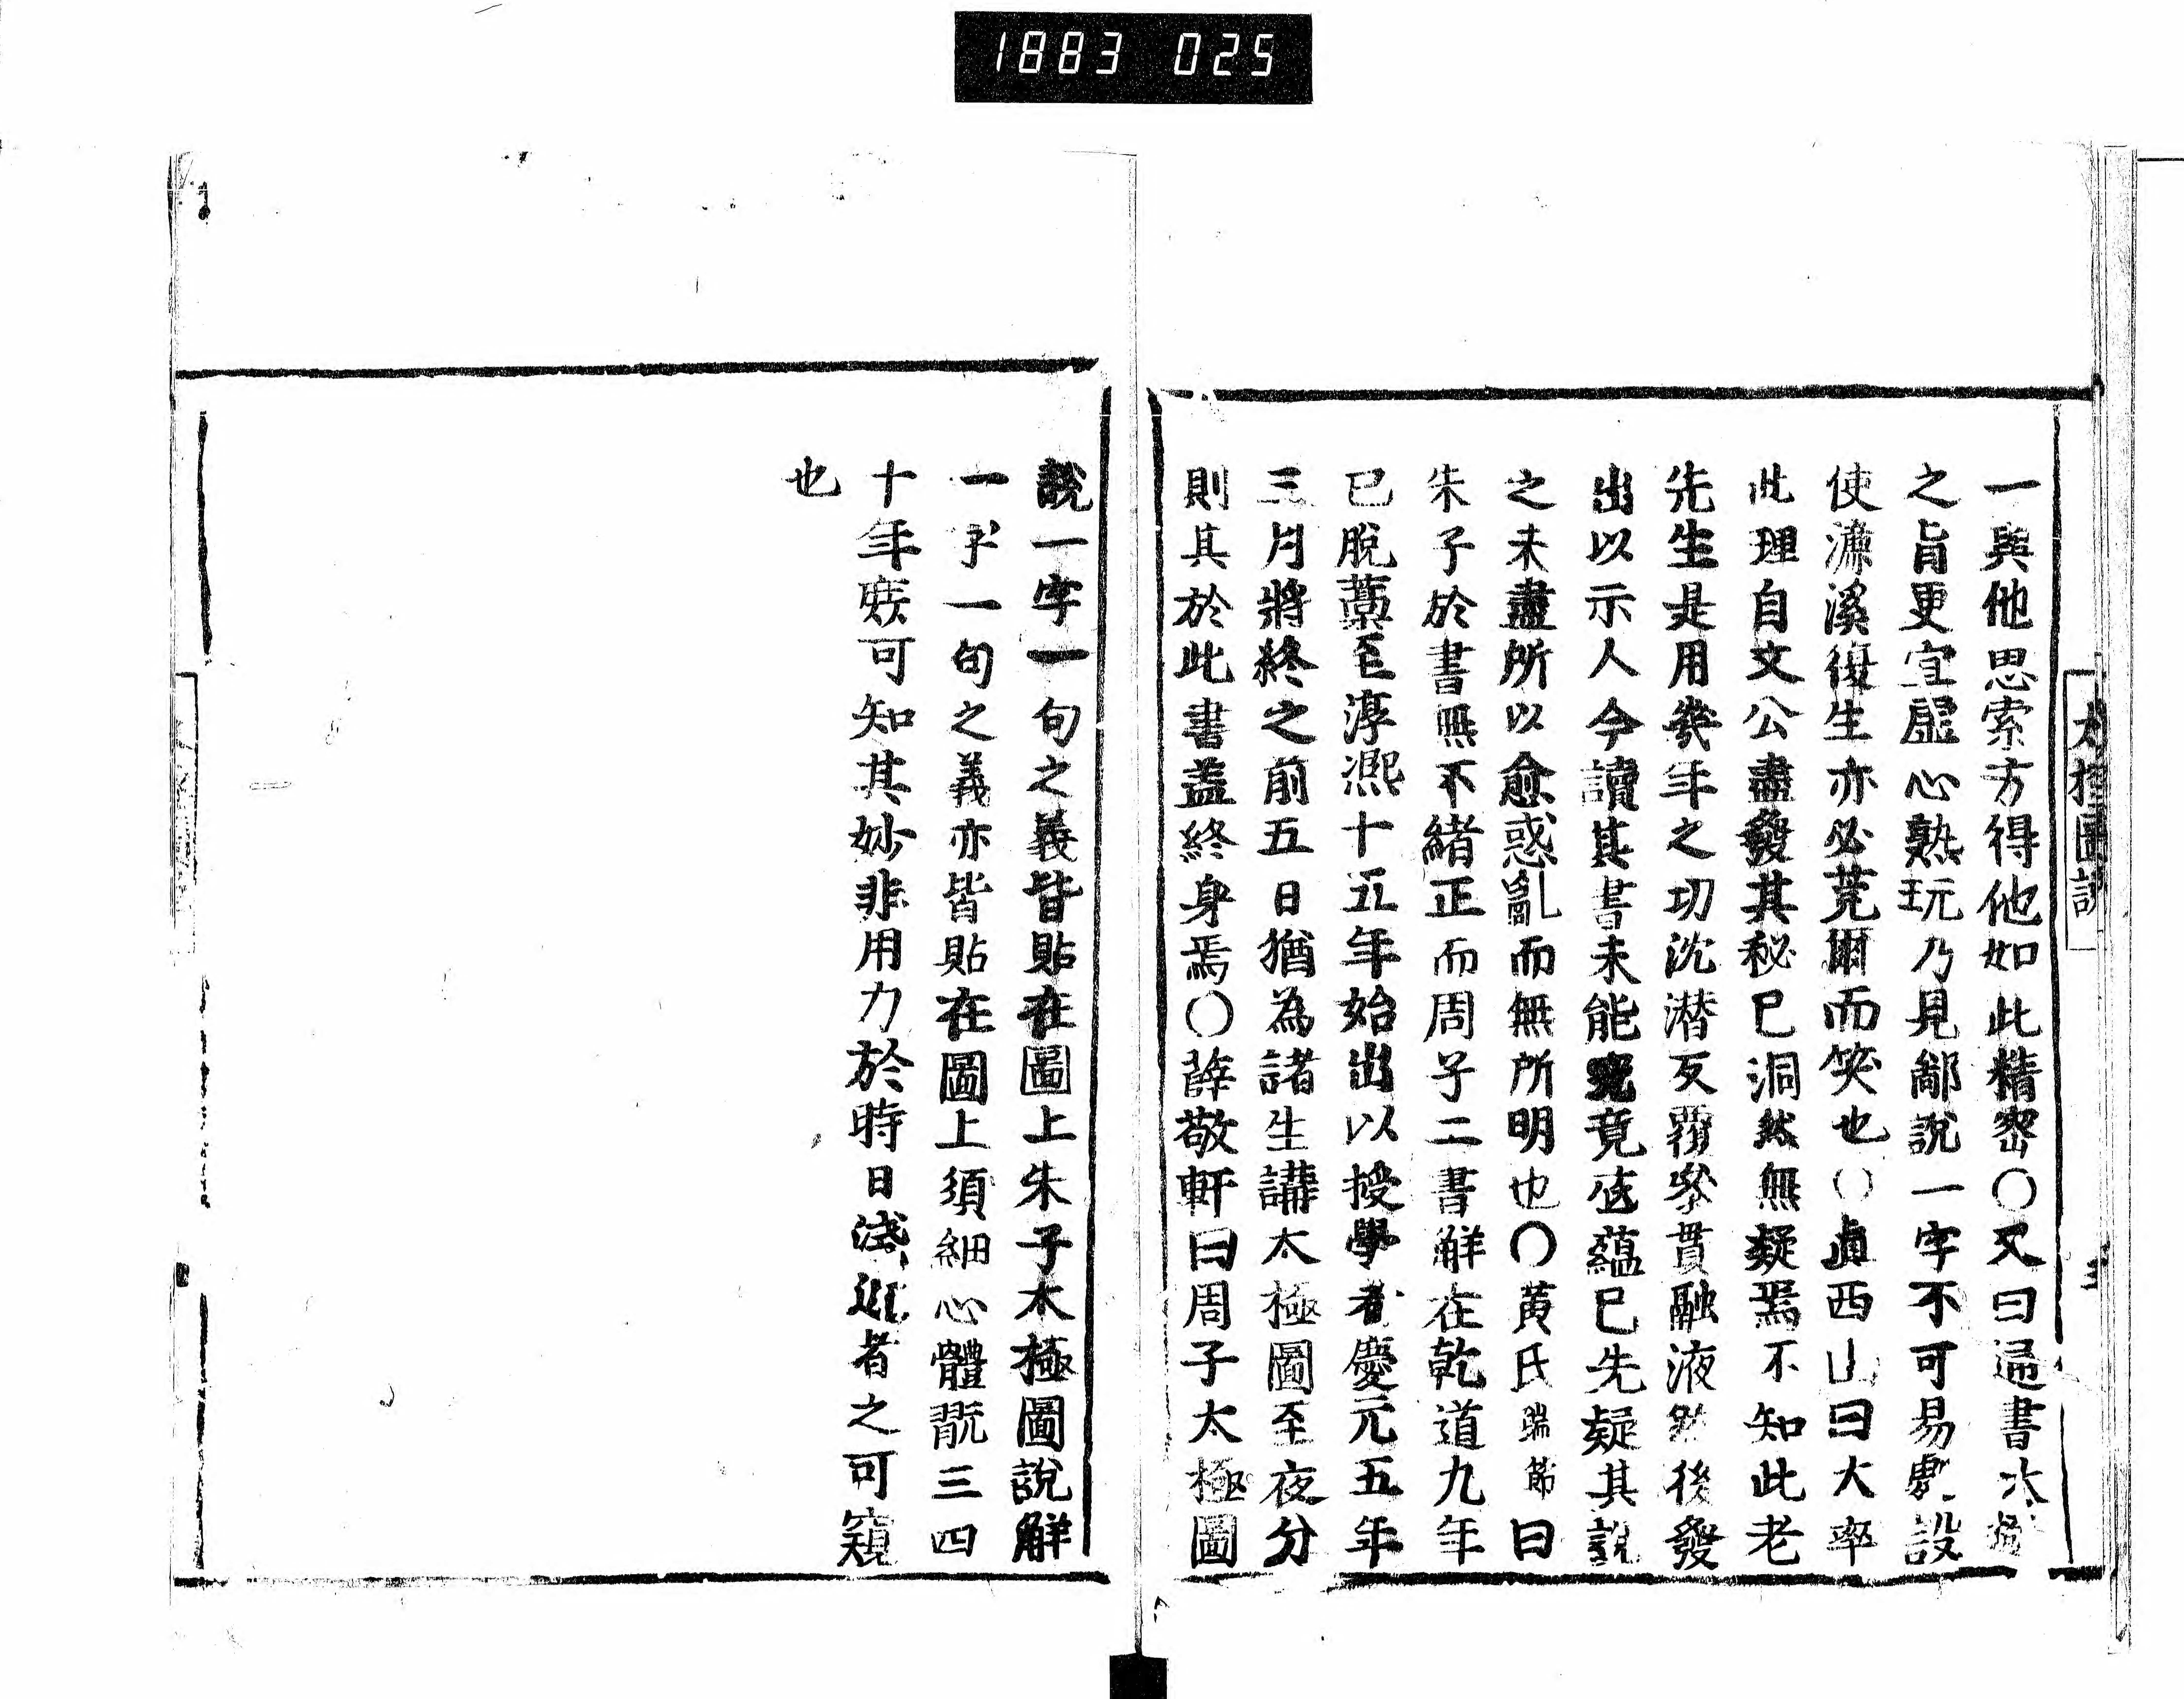 1883 025
太極圖說
三
一與他思索方得他如此精密○又曰通書太極
之旨更宜虛心熟玩乃見鄙說一字不可易處設
使濂溪復生亦必莞爾而笑也○眞西山曰大率
此理自文公盡發其秘已洞然無疑焉不知此老
先生是用幾年之功沈潜反覆參貫融液然後發
出以示人今讀其書未能究竟底蘊已先疑其說
之未盡所以愈惑亂而無所明也○黃氏瑞節曰
朱子於書無不緒正而周子二書解在乾道九年
已脫藁至淳熙十五年始出以授學者慶元五年
三月將終之前五日猶為諸生講太極圖至夜分
則其於此書盖終身焉○薛敬軒曰周子太極圖
說一字一句之義皆貼在圖上朱子太極圖說解
一字一句之義亦皆貼在圖上須細心體翫三四
十年庶可知其妙非用力於時日淺近者之可窺
也